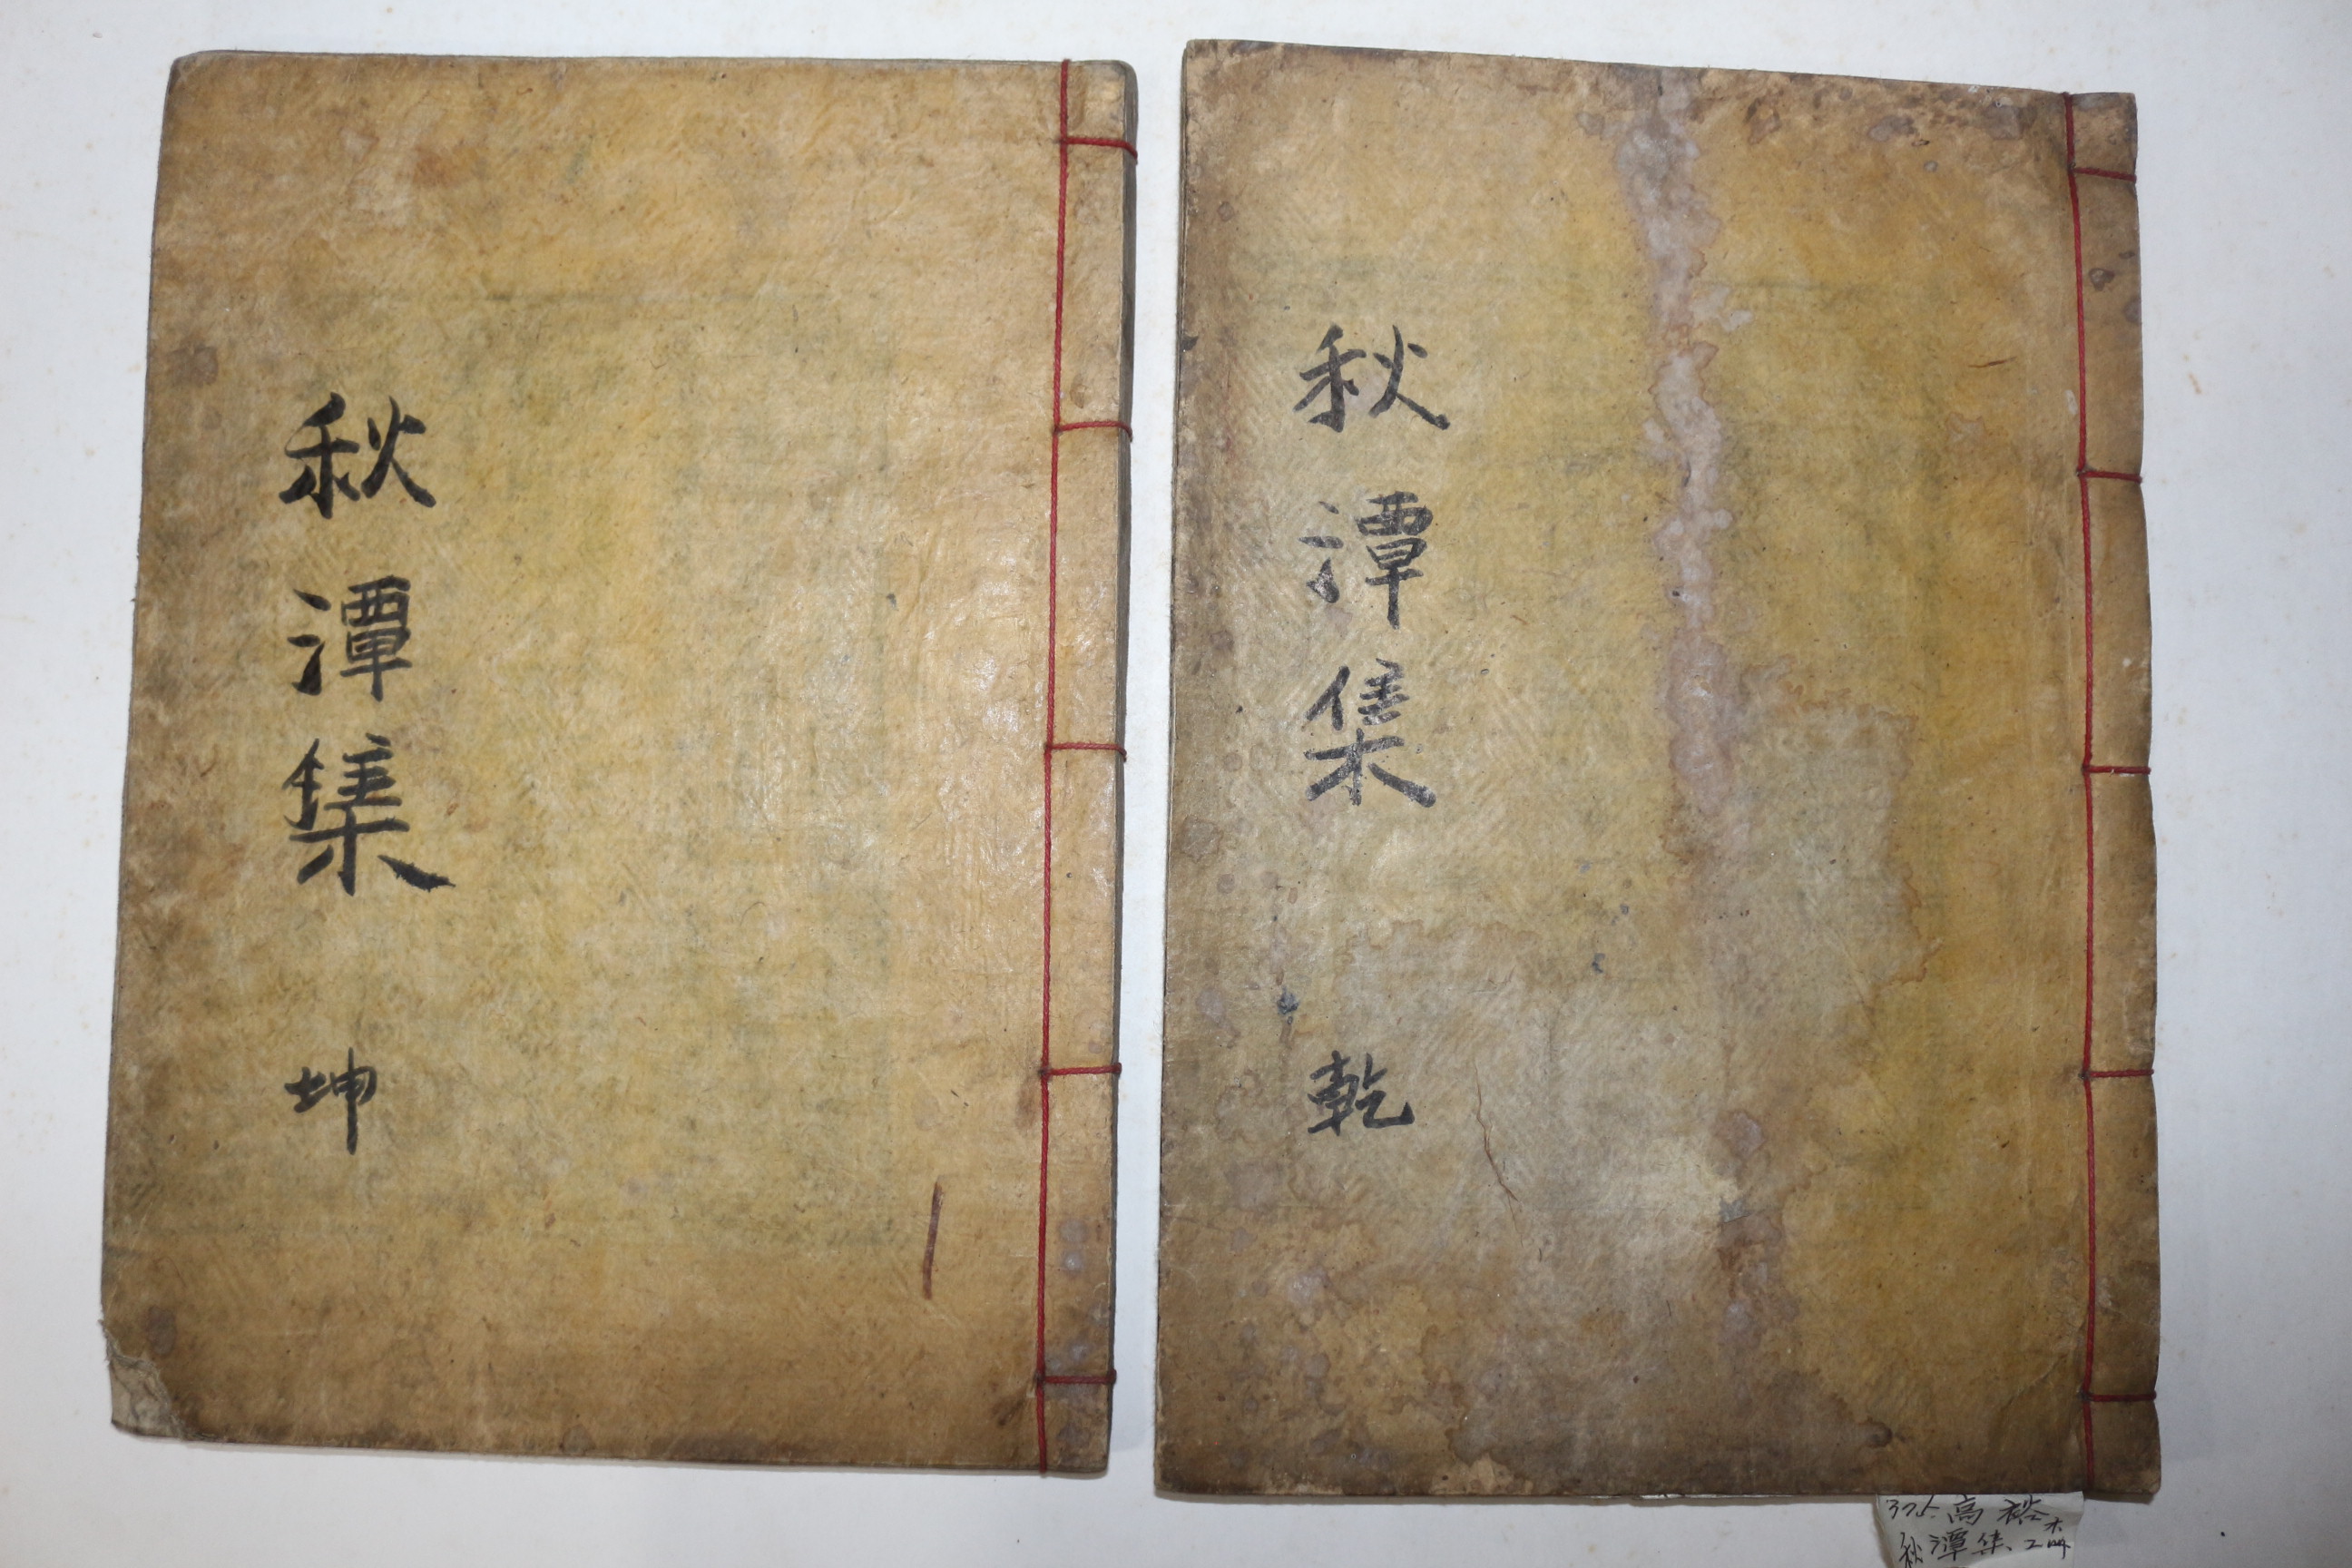 秋潭集 乾
秋潭集 坤
375. 高裕
秋潭集、2冊
木